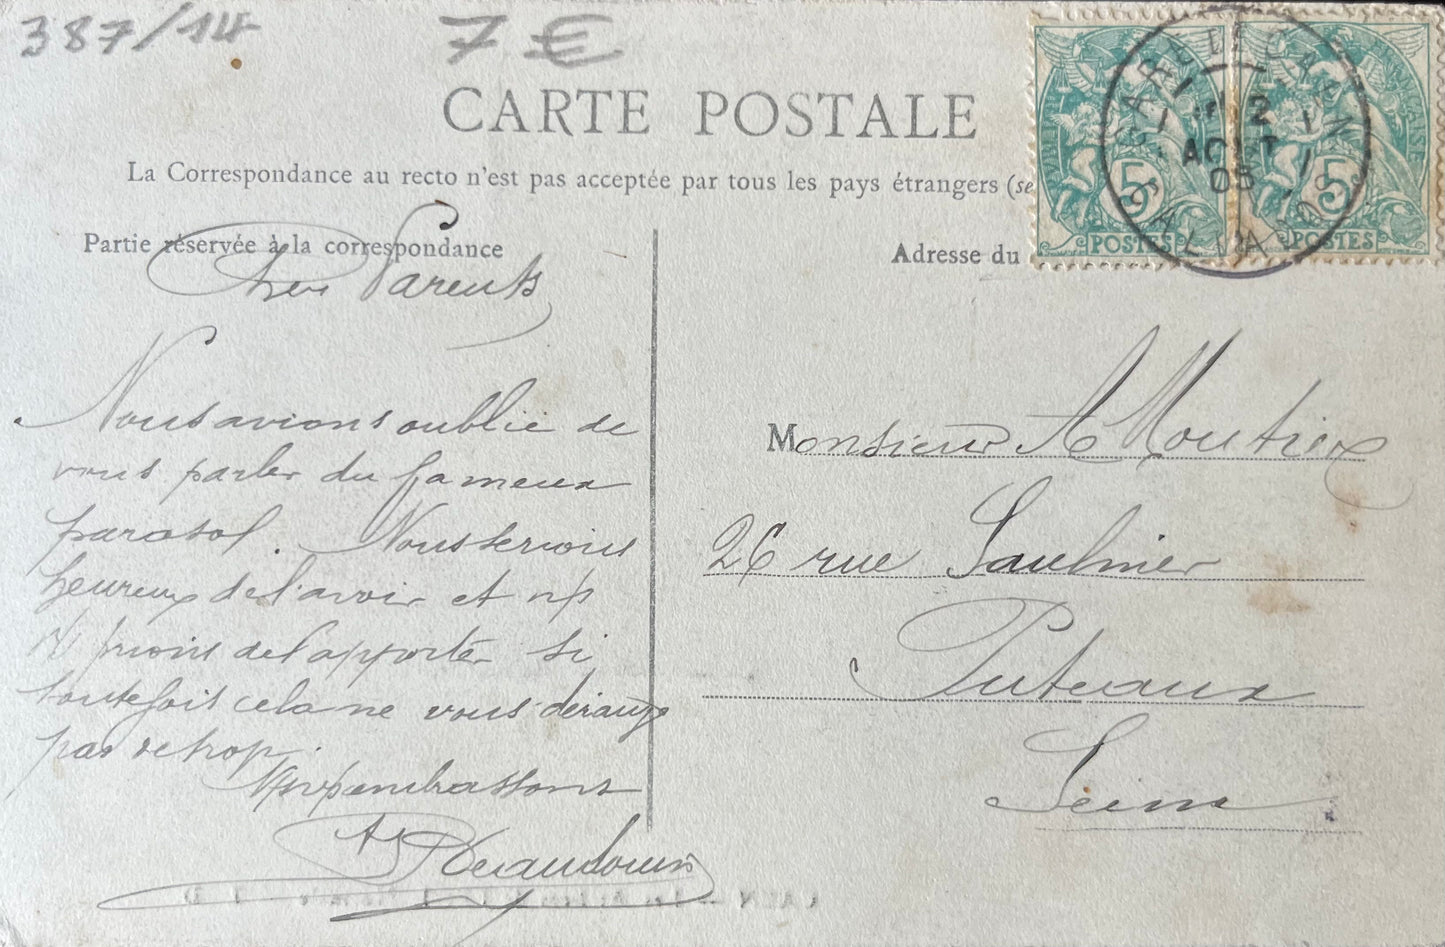 387/14
7 €
CARTE POSTALE
La Correspondance au recto n'est pas acceptée par tous les pays étrangers (se
Partie réservée à la correspondance
Adresse du
5 5
POSTES POSTES
2
AOUT
05
Chers Parents
Nous avions oublié de
vous parler du fameux
parasol. Nous serions
heureux de l'avoir et
prions de l'apporter si
toutefois cela ne vous dérange
pas de trop.
embrassons
Monsieur A Moutrix
26 rue Saulnier
Puteaux
Seine